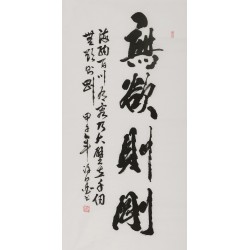 無欲則剛
海納百川有容乃大壁立千仞
無欲則剛 甲子年